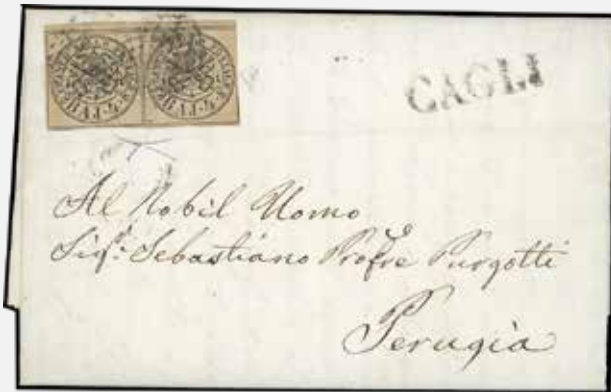 BAJ 4
BAJ 4
CAGLI
Al Nobil Uomo
Sigr: Sebastiano Profre Purgotti
Perugia